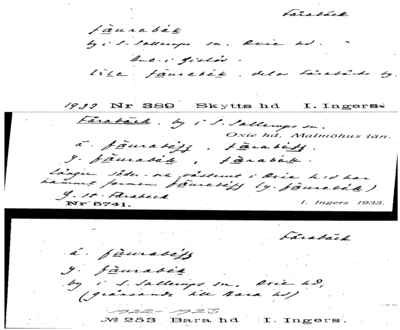 Fårabäck
fåurabék
by i S. Sallerups sn, Oxie hd.
lilla fåurabék, del av Fårabäcks by.
1932 Nr 389 Skytts hd I. Ingers.
Fårabäck, by i S. Sallerups sn.
Oxie hd, Malmöhus län.
ä. fåurabéss, fårabéss.
y. fåurabék, fårabék.
längre söder- och västerut i Oxie hd har
namnet formen fåurabéss (y. fåurabék)
Nr 5741. I. Ingers 1933.
Fårabäck
ä. fåurabéss
y. fåurabék
by i S. Sallerups sn, Oxie hd,
(gränsande till Bara hd)
1922-1923
№ 253 Bara hd I. Ingers.